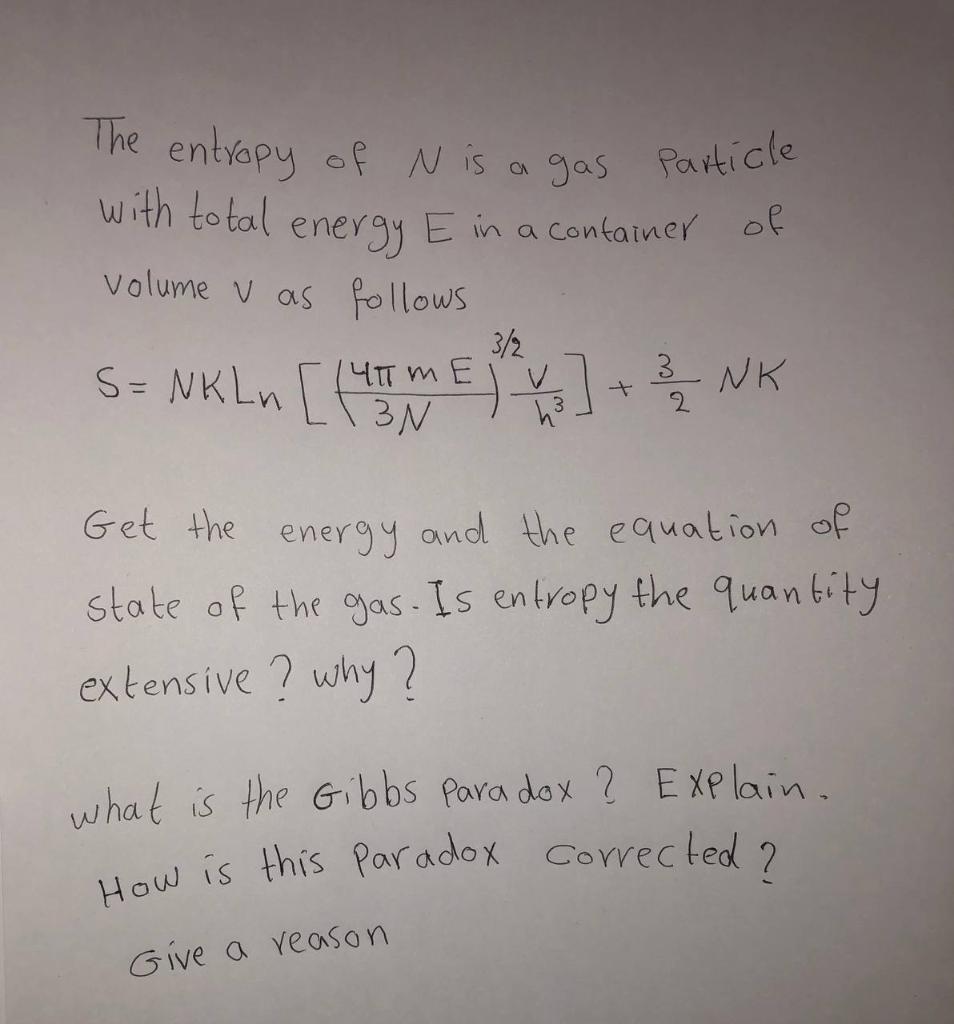 The entropy of N is a gas Particle
with total energy E in a container of
volume v as follows
S = NKLn [(4π m E / 3N)^3/2 v/h^3] + 3/2 NK
Get the energy and the equation of
state of the gas. Is entropy the quantity
extensive ? why ?
what is the Gibbs Paradox ? Explain.
How is this Paradox corrected ?
Give a reason